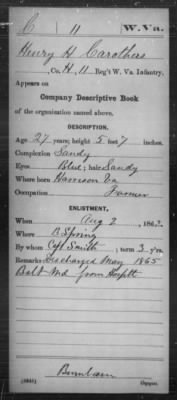 C 11 W. Va.
Henry H. Carothers
, Co. H, 11 Reg't W. Va. Infantry.
Appears on
Company Descriptive Book
of the organization named above.
DESCRIPTION.
Age 27 years; height 5 feet 7 inches.
Complexion Sandy
Eyes Blue; hair Sandy
Where born Harrison Co
Occupation Farmer
ENLISTMENT.
When Aug 2, 1862.
Where B. Spring
By whom Capt Smith; term 3 y'rs.
Remarks: Discharged May 1865
Balt Md from Hosptl
Burnham
Copyist.